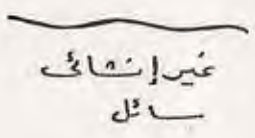 غير إنشائى
سائل